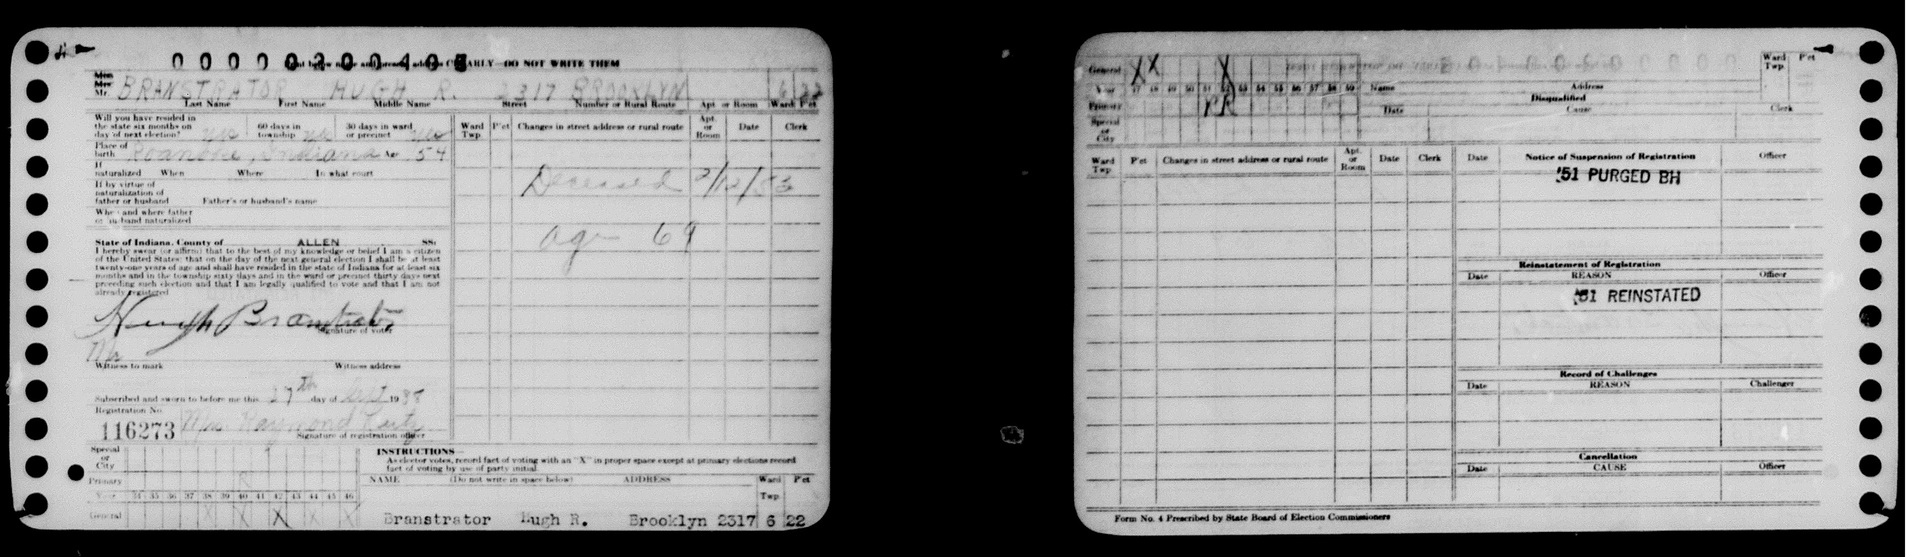 0 0 0 0 0 2 0 0 4 0
ARLY—DO NOT WRITE THEM
Mr. BRANSTRATOR HUGH R. 2317 BROOKLYN 6 22
Last Name First Name Middle Name Street Number or Rural Route Apt. or Room Ward P'ct
Will you have resided in the state six months on day of next election? yes 60 days in township yes 30 days in ward or precinct yes
Place of birth Roanoke, Indiana Age 54
If naturalized When Where In what court
If by virtue of naturalization of father or husband Father's or husband's name
When and where father or husband naturalized
State of Indiana, County of ALLEN SS:
I hereby swear (or affirm) that to the best of my knowledge or belief I am a citizen
of the United States; that on the day of the next general election I shall be at least
twenty-one years of age and shall have resided in the state of Indiana for at least six
months and in the township sixty days and in the ward or precinct thirty days next
preceding such election and that I am legally qualified to vote and that I am not
already registered
Hugh Branstrator
Signature of voter
Witness to mark Witness address
Subscribed and sworn to before me this 27th day of Sept 1938
Registration No.
116273 Mrs. Raymond
Signature of registration officer
Special or City
Primary R
Year 34 35 36 37 38 39 40 41 42 43 44 45 46
General X X X X X
Ward Twp. P'ct Changes in street address or rural route Apt. or Room Date Clerk
Deceased 2/12/53
age 69
INSTRUCTIONS—
As elector votes, record fact of voting with an "X" in proper space except at primary elections record
fact of voting by use of party initial.
NAME (Do not write in space below) ADDRESS Ward Twp. P'ct
Branstrator Hugh R. Brooklyn 2317 6 22
General X X X
Year 47 48 49 50 51 52 53 54 55 56 57 58 59
Primary R R
Special or City
Name Address Ward Twp. P'ct
Disqualified
Date Cause Clerk
Ward Twp. P'ct Changes in street address or rural route Apt. or Room Date Clerk
Date Notice of Suspension of Registration Officer
'51 PURGED BH
Reinstatement of Registration
Date REASON Officer
'51 REINSTATED
Record of Challenges
Date REASON Challenger
Cancellation
Date CAUSE Officer
Form No. 4 Prescribed by State Board of Election Commissioners